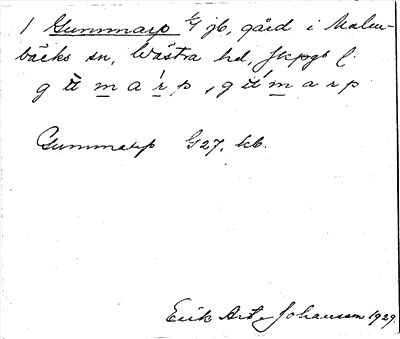 1 Gummarp G jb, gård i Malm-
bäcks sn, Västra hd, Jkpgs l.
g m a r p, g m a r p
Gummarp G27. kb.
Erik Johansson 1929.